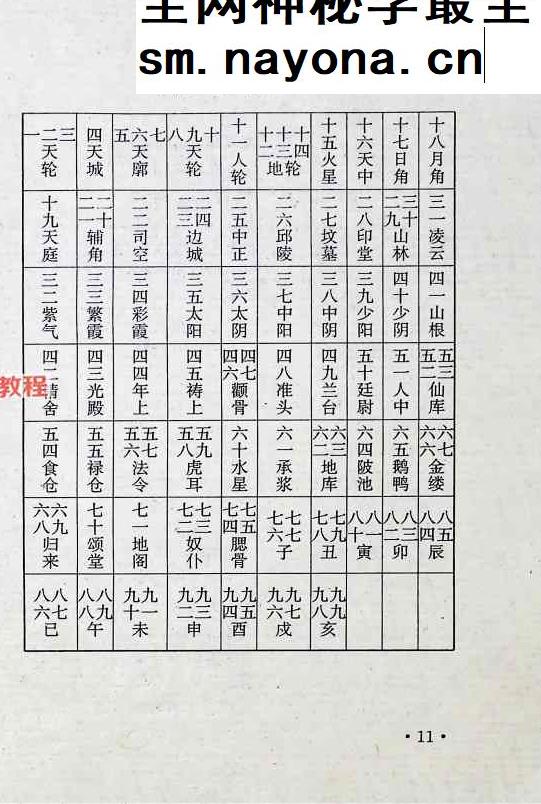 全网神秘学最全
sm.nayona.cn
一二三天轮 四天城 五六七天廓 八九十天轮 十一人轮 十二十三十四地轮 十五火星 十六天中 十七日角 十八月角
十九天庭 二十二一辅角 二二司空 二三二四边城 二五中正 二六邱陵 二七坟墓 二八印堂 二九三十山林 三一凌云
三二紫气 三三繁霞 三四彩霞 三五太阳 三六太阴 三七中阳 三八中阴 三九少阳 四十少阴 四一山根
四二精舍 四三光殿 四四年上 四五祷上 四六四七颧骨 四八准头 四九兰台 五十廷尉 五一人中 五二五三仙库
五四食仓 五五禄仓 五六五七法令 五八五九虎耳 六十水星 六一承浆 六二六三地库 六四陂池 六五鹅鸭 六六六七金缕
六八六九归来 七十颂堂 七一地阁 七二七三奴仆 七四七五腮骨 七六七七子 七八七九丑 八十八一寅 八二八三卯 八四八五辰
八六八七巳 八八八九午 九十九一未 九二九三申 九四九五酉 九六九七戌 九八九九亥
教程
·11·